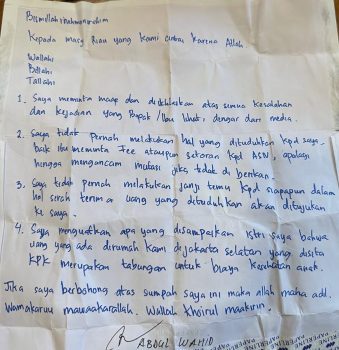 Bismillahirrahmanirrahim
Kepada masy Riau yang Kami cintai Karena Allah.
Wallahi
Billahi
Tallahi
1. Saya meminta maap dan diikhlaskan atas semua Kesalahan
dan Kejadian yang Bapak/Ibu lihat, dengar dari media.
2. Saya tidak Pernah melakukan hal yang dituduhkan Kpd saya.
baik itu meminta Fee ataupun setoran Kpd ASN, apalagi
hingga mengancam mutasi jika tidak di berikan.
3. Saya tidak pernah melakukan janji temu Kpd siapapun dalam
hal serah terima uang yang dituduhkan akan ditujukan
Ke saya.
4. Saya menguatkan apa yang disampaikan istri saya bahwa
uang yang ada dirumah Kami di Jakarta selatan yang disita
KPK merupakan tabungan untuk biaya Kesehatan anak.
Jika saya berbohong atas sumpah saya ini maka allah maha adil.
Wamakaruu wamakarallah. Wallah Khoirul maakirin.
ABDUL WAHID
PAPERLINE